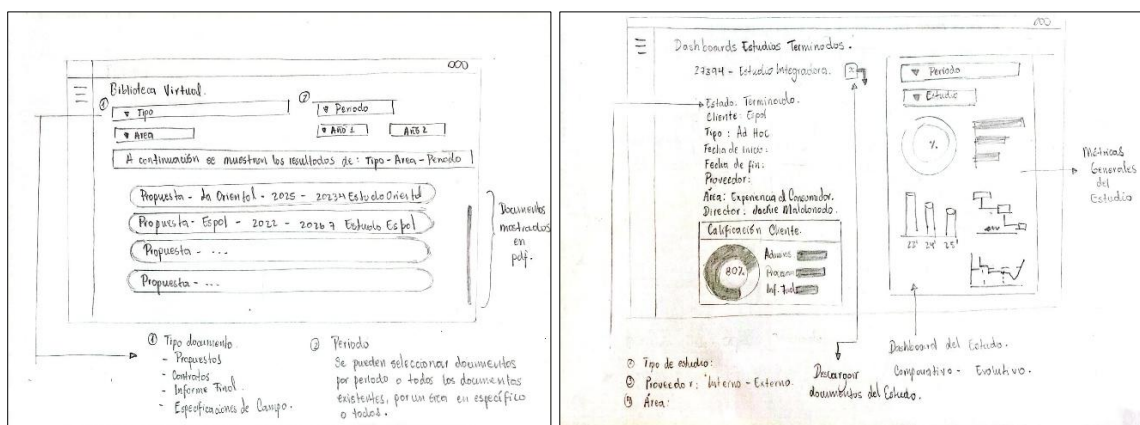 Biblioteca Virtual.
① ▼ Tipo
② ▼ Periodo
▼ Area
▼ Año 1
Año 2
A continuación se muestran los resultados de: Tipo - Area - Periodo
Propuesta - La Oriental - 2025 - 20234 Estudio Oriental
Propuesta - Espol - 2022 - 20267 Estudio Espol
Propuesta - ...
Propuesta - ...
Documentos
mostrados
en
pdf.
① Tipo documento
- Propuestas
- Contratos
- Informe Final.
- Especificaciones de Campo.
② Periodo
Se pueden seleccionar documentos
por periodo o todos los documentos
existentes, por un área en específico
o todos.
Dashboards Estudios Terminados.
27394 - Estudio Integradora.
Estado: Terminado.
Cliente: Espol
Tipo: Ad Hoc
Fecha de inicio:
Fecha de fin:
Proveedor:
Área: Experiencia al Consumidor.
Director: Jackie Maldonado.
Calificación Cliente.
80%
Proceso
▼ Periodo
▼ Estudio
%
23' 24' 25'
Métricas
Generales
del
Estudio
Dashboard del Estudio.
Comparativo - Evolutivo.
Tipo de estudio:
Proveedor: Interno - Externo.
Área:
Descargar
documentos del Estudio.